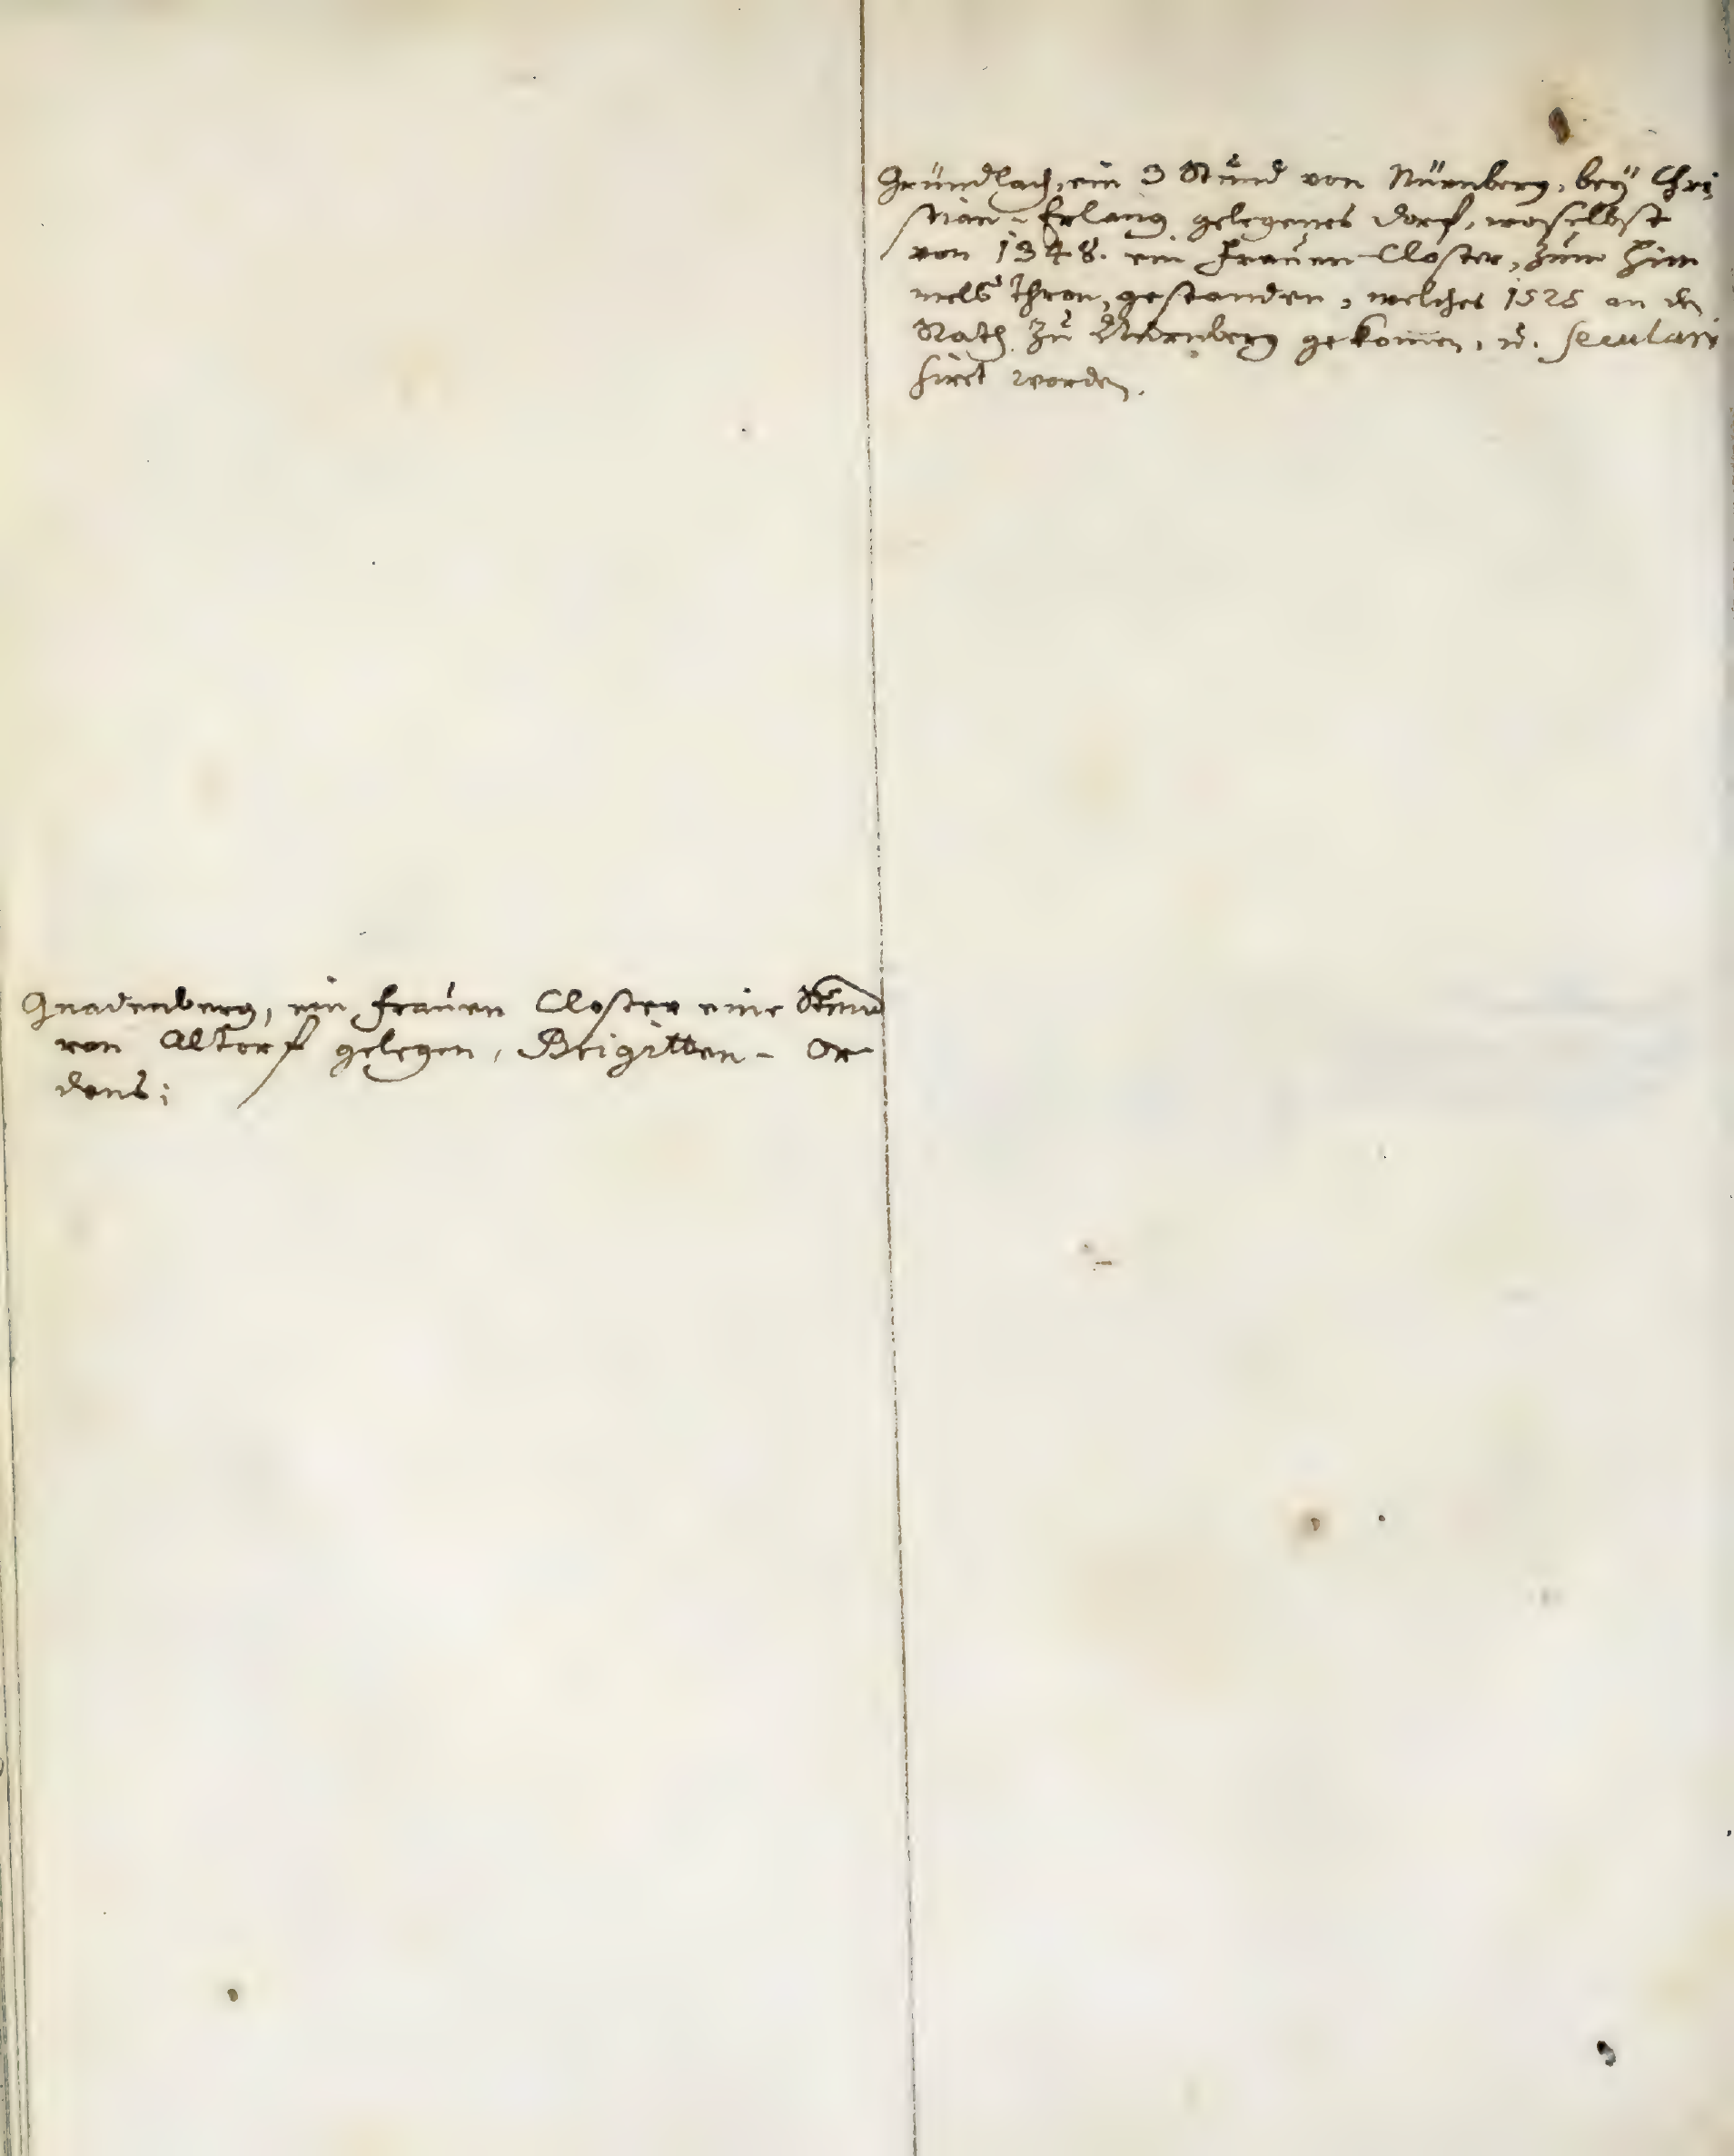 Gnadenberg, ein Frauen Closter eine Stund
von Altorf gelegen, Brigitten- Or
dens;
Gründlach, ein 3 Stund von Nürnberg, bey Chri-
stian-Erlang gelegenes Dorf, woselbst
von 1348. ein Frauen-Closter, zum Him
mels Thron, gestanden, welches 1525 an den
Rath zu Nürnberg gekom̄en, u. seculari
siret worden.